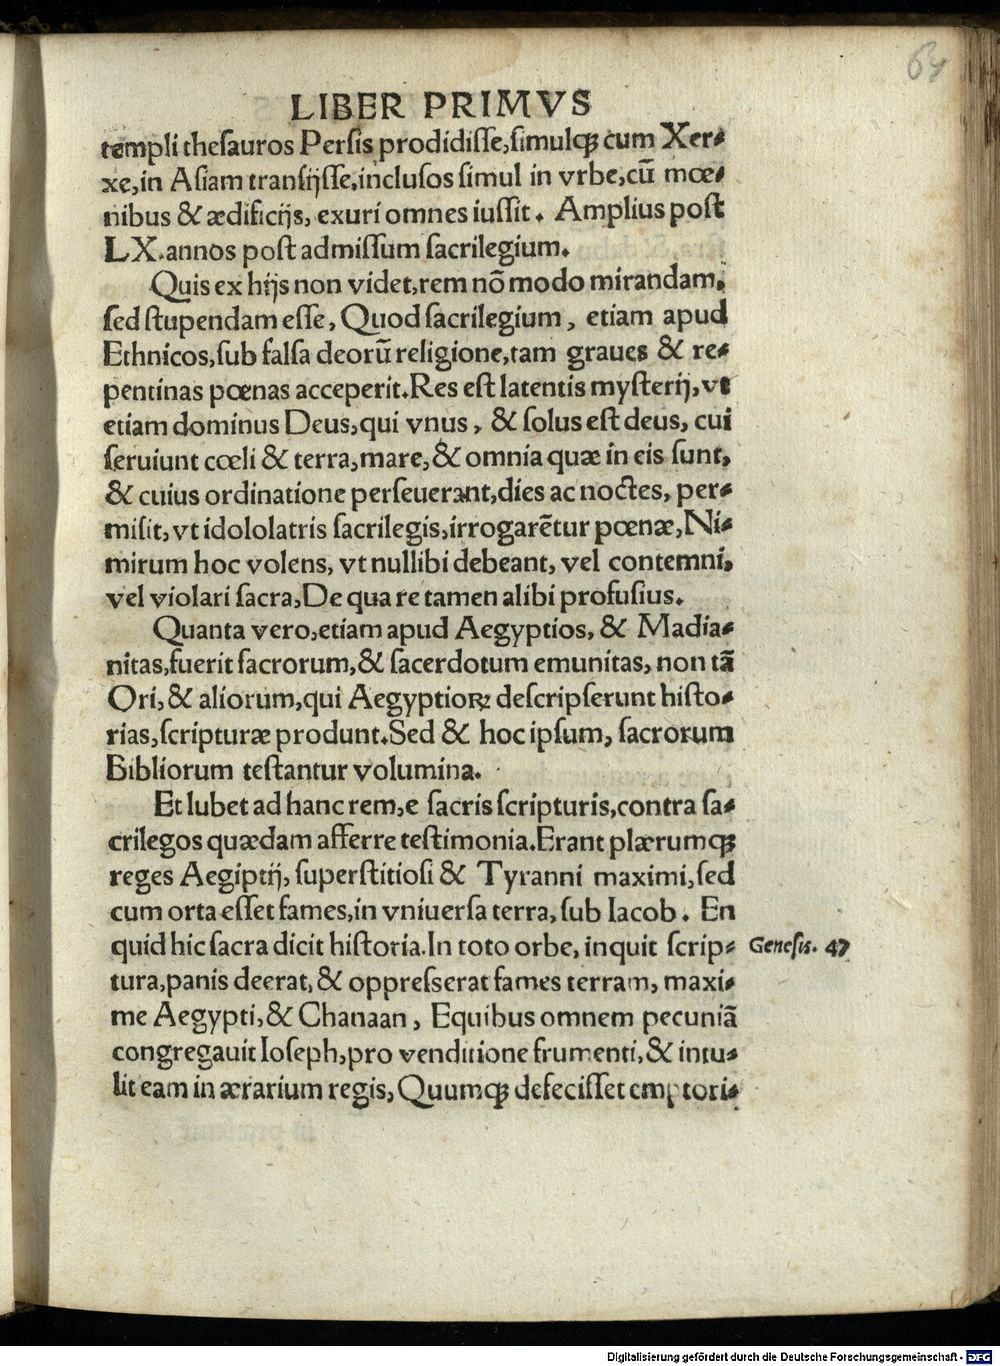 64
LIBER PRIMVS
templi theſauros Perſis prodidiſſe,ſimulqꝫ cum Xer⸗
xe,in Aſiam tranſijſſe,incluſos ſimul in vrbe,cū mœ⸗
nibus & ædificijs, exuri omnes iuſſit. Amplius poſt
LX.annos poſt admiſſum ſacrilegium.
Quis ex hijs non videt,rem nō modo mirandam,
ſed ſtupendam eſſe, Quod ſacrilegium, etiam apud
Ethnicos,ſub falſa deorū religione,tam graues & re⸗
pentinas pœnas acceperit.Res eſt latentis myſterij,vt
etiam dominus Deus,qui vnus, & ſolus eſt deus, cui
ſeruiunt cœli & terra,mare,& omnia quæ in eis ſunt,
& cuius ordinatione perſeuerant,dies ac noctes, per⸗
miſit,vt idololatris ſacrilegis,irrogarētur pœnæ,Ni⸗
mirum hoc volens, vt nullibi debeant, vel contemni,
vel violari ſacra,De qua re tamen alibi profuſius.
Quanta vero,etiam apud Aegyptios, & Madia⸗
nitas,fuerit ſacrorum,& ſacerdotum emunitas, non tā
Ori,& aliorum,qui Aegyptioꝝ deſcripſerunt hiſto⸗
rias,ſcripturæ produnt.Sed & hoc ipſum, ſacrorum
Bibliorum teſtantur volumina.
Et lubet ad hanc rem,e ſacris ſcripturis,contra ſa⸗
crilegos quædam afferre teſtimonia.Erant plærumqꝫ
reges Aegiptij, ſuperſtitioſi & Tyranni maximi,ſed
cum orta eſſet fames,in vniuerſa terra, ſub Iacob. En
quid hic ſacra dicit hiſtoria.In toto orbe, inquit ſcrip⸗
Geneſis. 47
tura,panis deerat,& oppreſſerat fames terram, maxi⸗
me Aegypti,& Chanaan, Equibus omnem pecuniā
congregauit Ioſeph,pro venditione frumenti,& intu⸗
lit eam in ærarium regis, Quumqꝫ defeciſſet emptori⸗
Digitalisierung gefördert durch die Deutsche Forschungsgemeinschaft - DFG